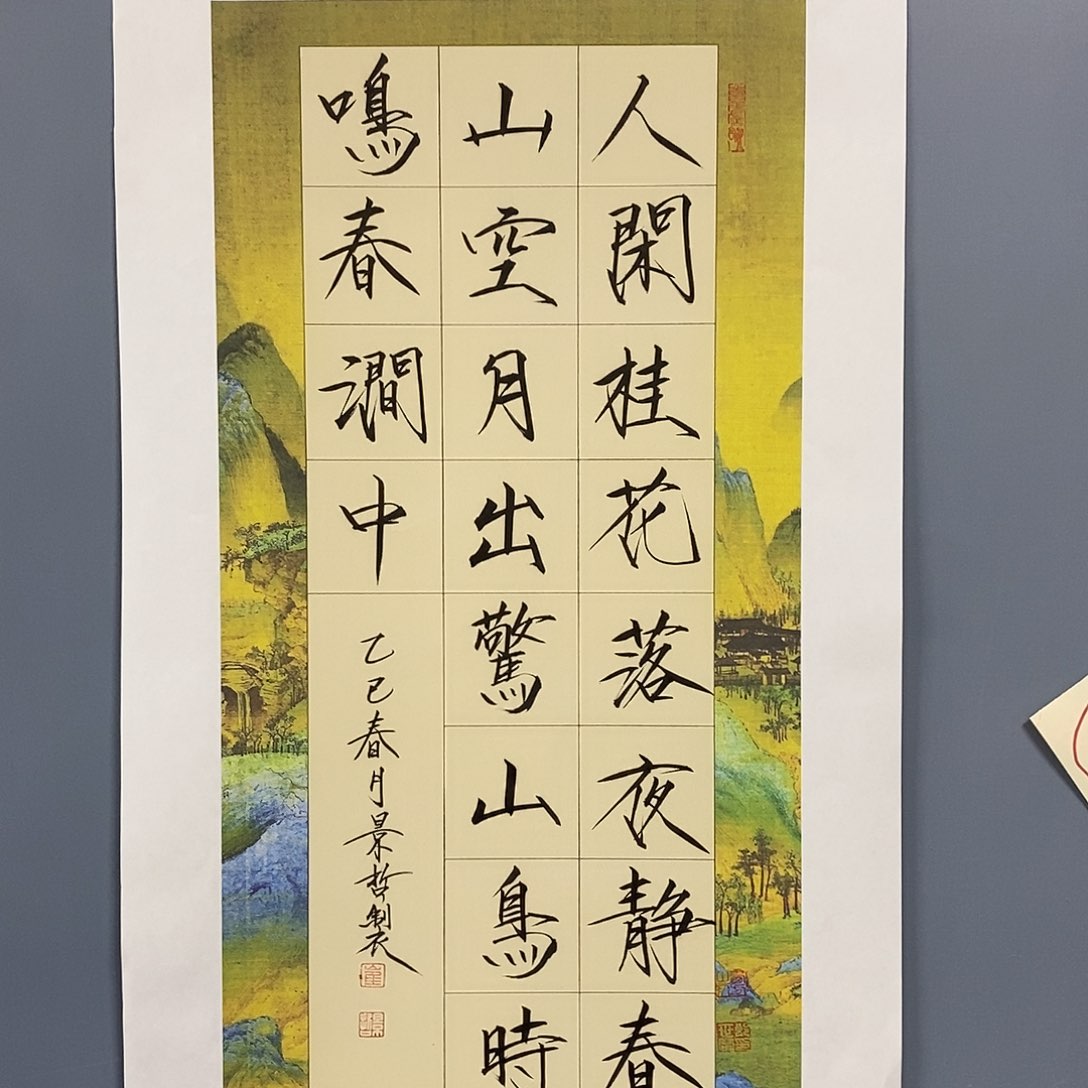 人閑桂花落夜靜春
山空月出驚山鳥時
鳴春澗中
乙巳春月景哲製